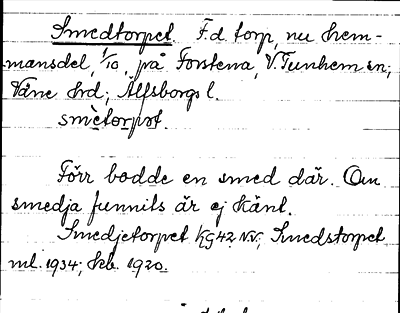 Smedtorpet. F.d. torp, nu hem-
mansdel, 1/10, på Forstena, V. Tunhem sn,
Väne hd; Älfsborgs l.
smètorpət.
Förr bodde en smed där. Om
smedja funnits är ej känt.
Smedjetorpet KG42 NV; Smedstorpet
ml. 1934; Kb. 1920.